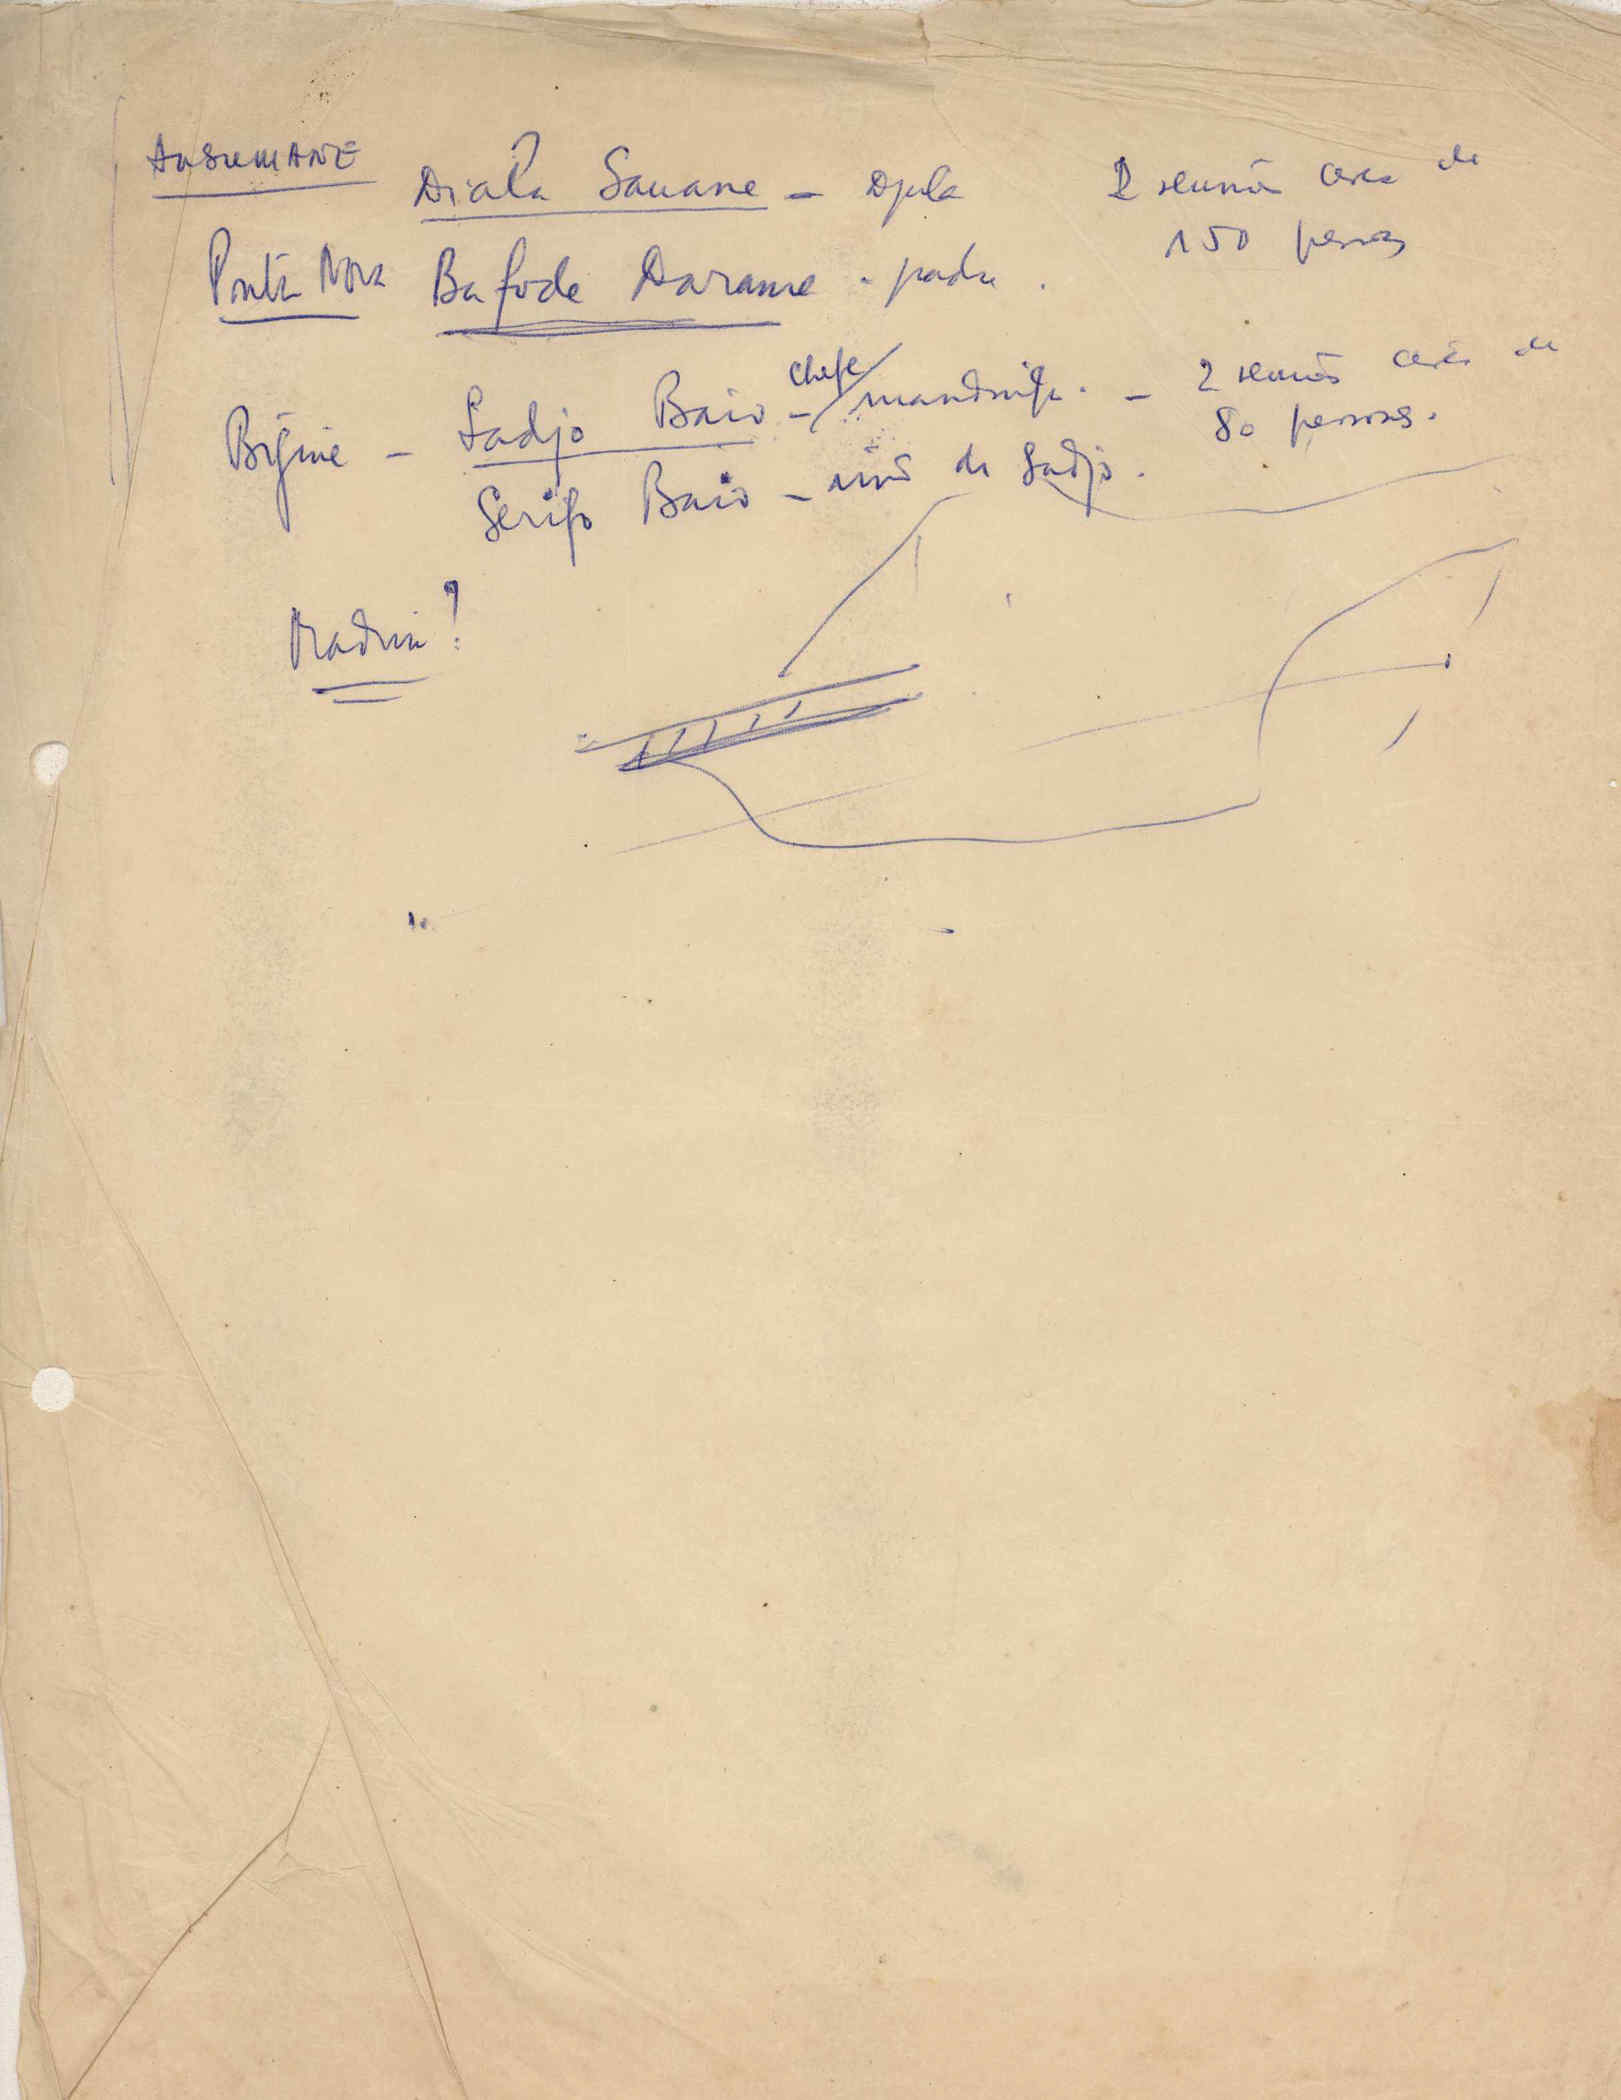 ANSUMANE
Diala Sauane - Djila 2 reunião cerca de
150 pessoas
Ponta Nova Bafode Darame - padre.
Bigine - Sadjo Baio - chefe/mandinga. - 2 reuniões cerca de
80 pessoas.
Serifo Baio - irmão de Sadjo.
?